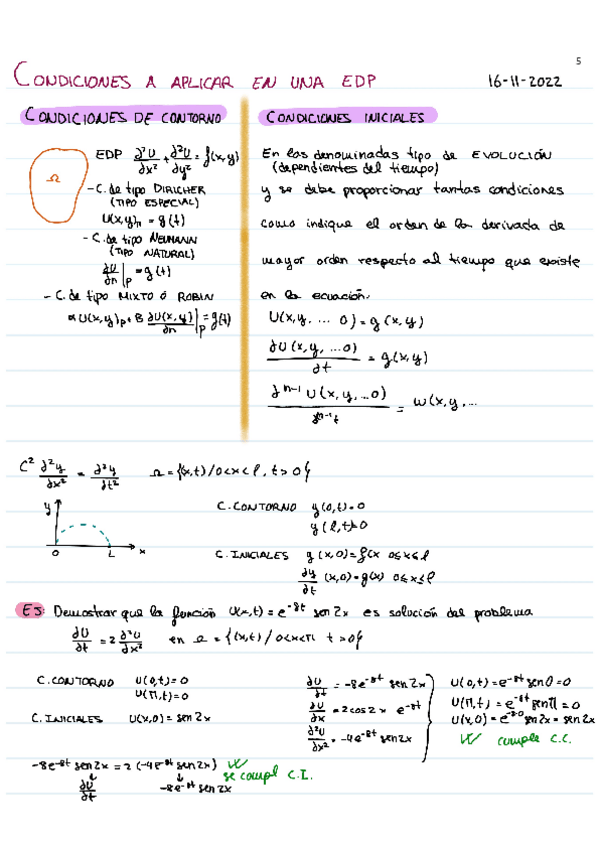 5
CONDICIONES A APLICAR EN UNA EDP 16-11-2022
CONDICIONES DE CONTORNO
Ω
EDP ∂²U/∂x² + ∂²U/∂y² = f(x,y)
- C. de tipo DIRICHER
(TIPO ESPECIAL)
U(x,y)ₚ = g(t)
- C. de tipo NEUMANN
(TIPO NATURAL)
∂U/∂n|ₚ = g(t)
- C. de tipo MIXTO Ó ROBIN
α U(x,y)ₚ + B ∂U(x,y)/∂n|ₚ = g(t)
CONDICIONES INICIALES
En las denominadas tipo de EVOLUCIÓN
(dependientes del tiempo)
y se debe proporcionar tantas condiciones
como indique el orden de la derivada de
mayor orden respecto al tiempo que existe
en la ecuación.
U(x,y, ... 0) = g(x,y)
∂U(x,y, ...0)/∂t = g(x,y)
∂ⁿ⁻¹U(x,y,...0)/∂ⁿ⁻¹t = w(x,y,...
C² ∂²y/∂x² = ∂²y/∂t² Ω = {(x,t)/0<x<l, t>0}
y
0 L x
C. CONTORNO y(0,t)=0
y(l,t)=0
C. INICIALES y(x,0)=f(x 0≤x≤l
∂y/∂t (x,0)=g(x) 0≤x≤l
EJ: Demostrar que la función U(x,t) = e^-8t sen 2x es solución del problema
∂U/∂t = 2 ∂²U/∂x² en Ω = {(x,t) / 0<x<π t>0}
C. CONTORNO U(0,t)=0
U(π,t)=0
C. INICIALES U(x,0) = sen 2x
∂U/∂t = -8e^-8t sen 2x
∂U/∂x = 2cos 2x e^-8t
∂²U/∂x² = -4e^-8t sen 2x
U(0,t) = e^-8t sen 0 = 0
U(π,t) = e^-8t sen π = 0
U(x,0) = e^-8·0 sen 2x = sen 2x
cumple C.C.
-8e^-8t sen 2x = 2(-4e^-8t sen 2x)
se compl C.I.
∂U/∂t -8e^-8t sen 2x